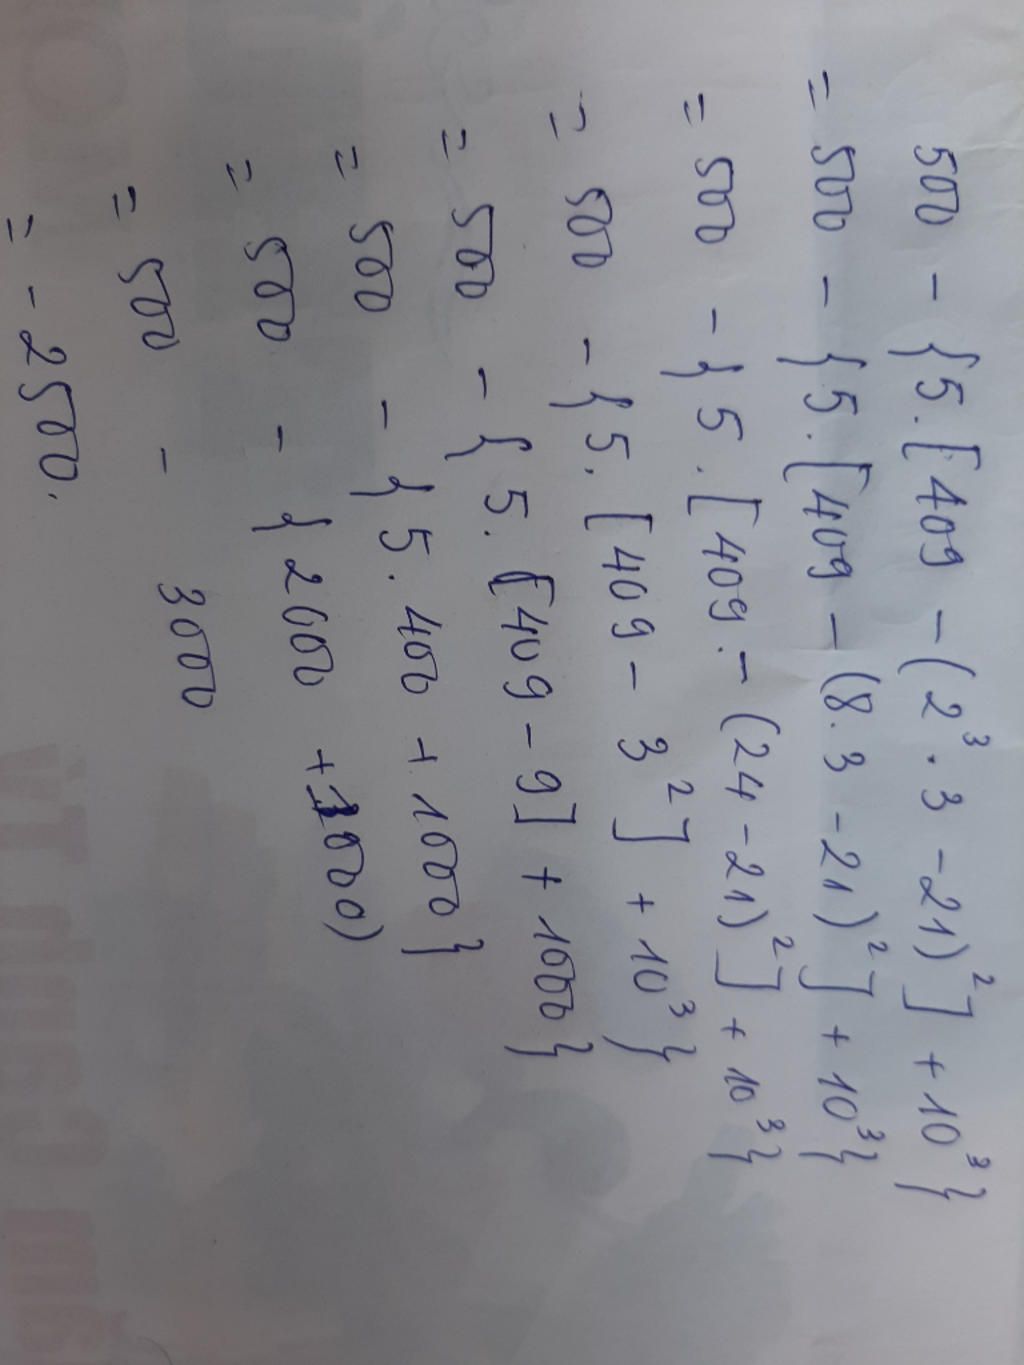 500 - {5.[409 - (2³.3 - 21)²] + 10³}
= 500 - {5.[409 - (8.3 - 21)²] + 10³}
= 500 - {5.[409.- (24 - 21)²] + 10³}
= 500 - {5.[409 - 3²] + 10³}
= 500 - {5.[409 - 9] + 1000}
= 500 - {5.400 + 1000}
= 500 - {2000 + 1000)
= 500 - 3000
= - 2500.